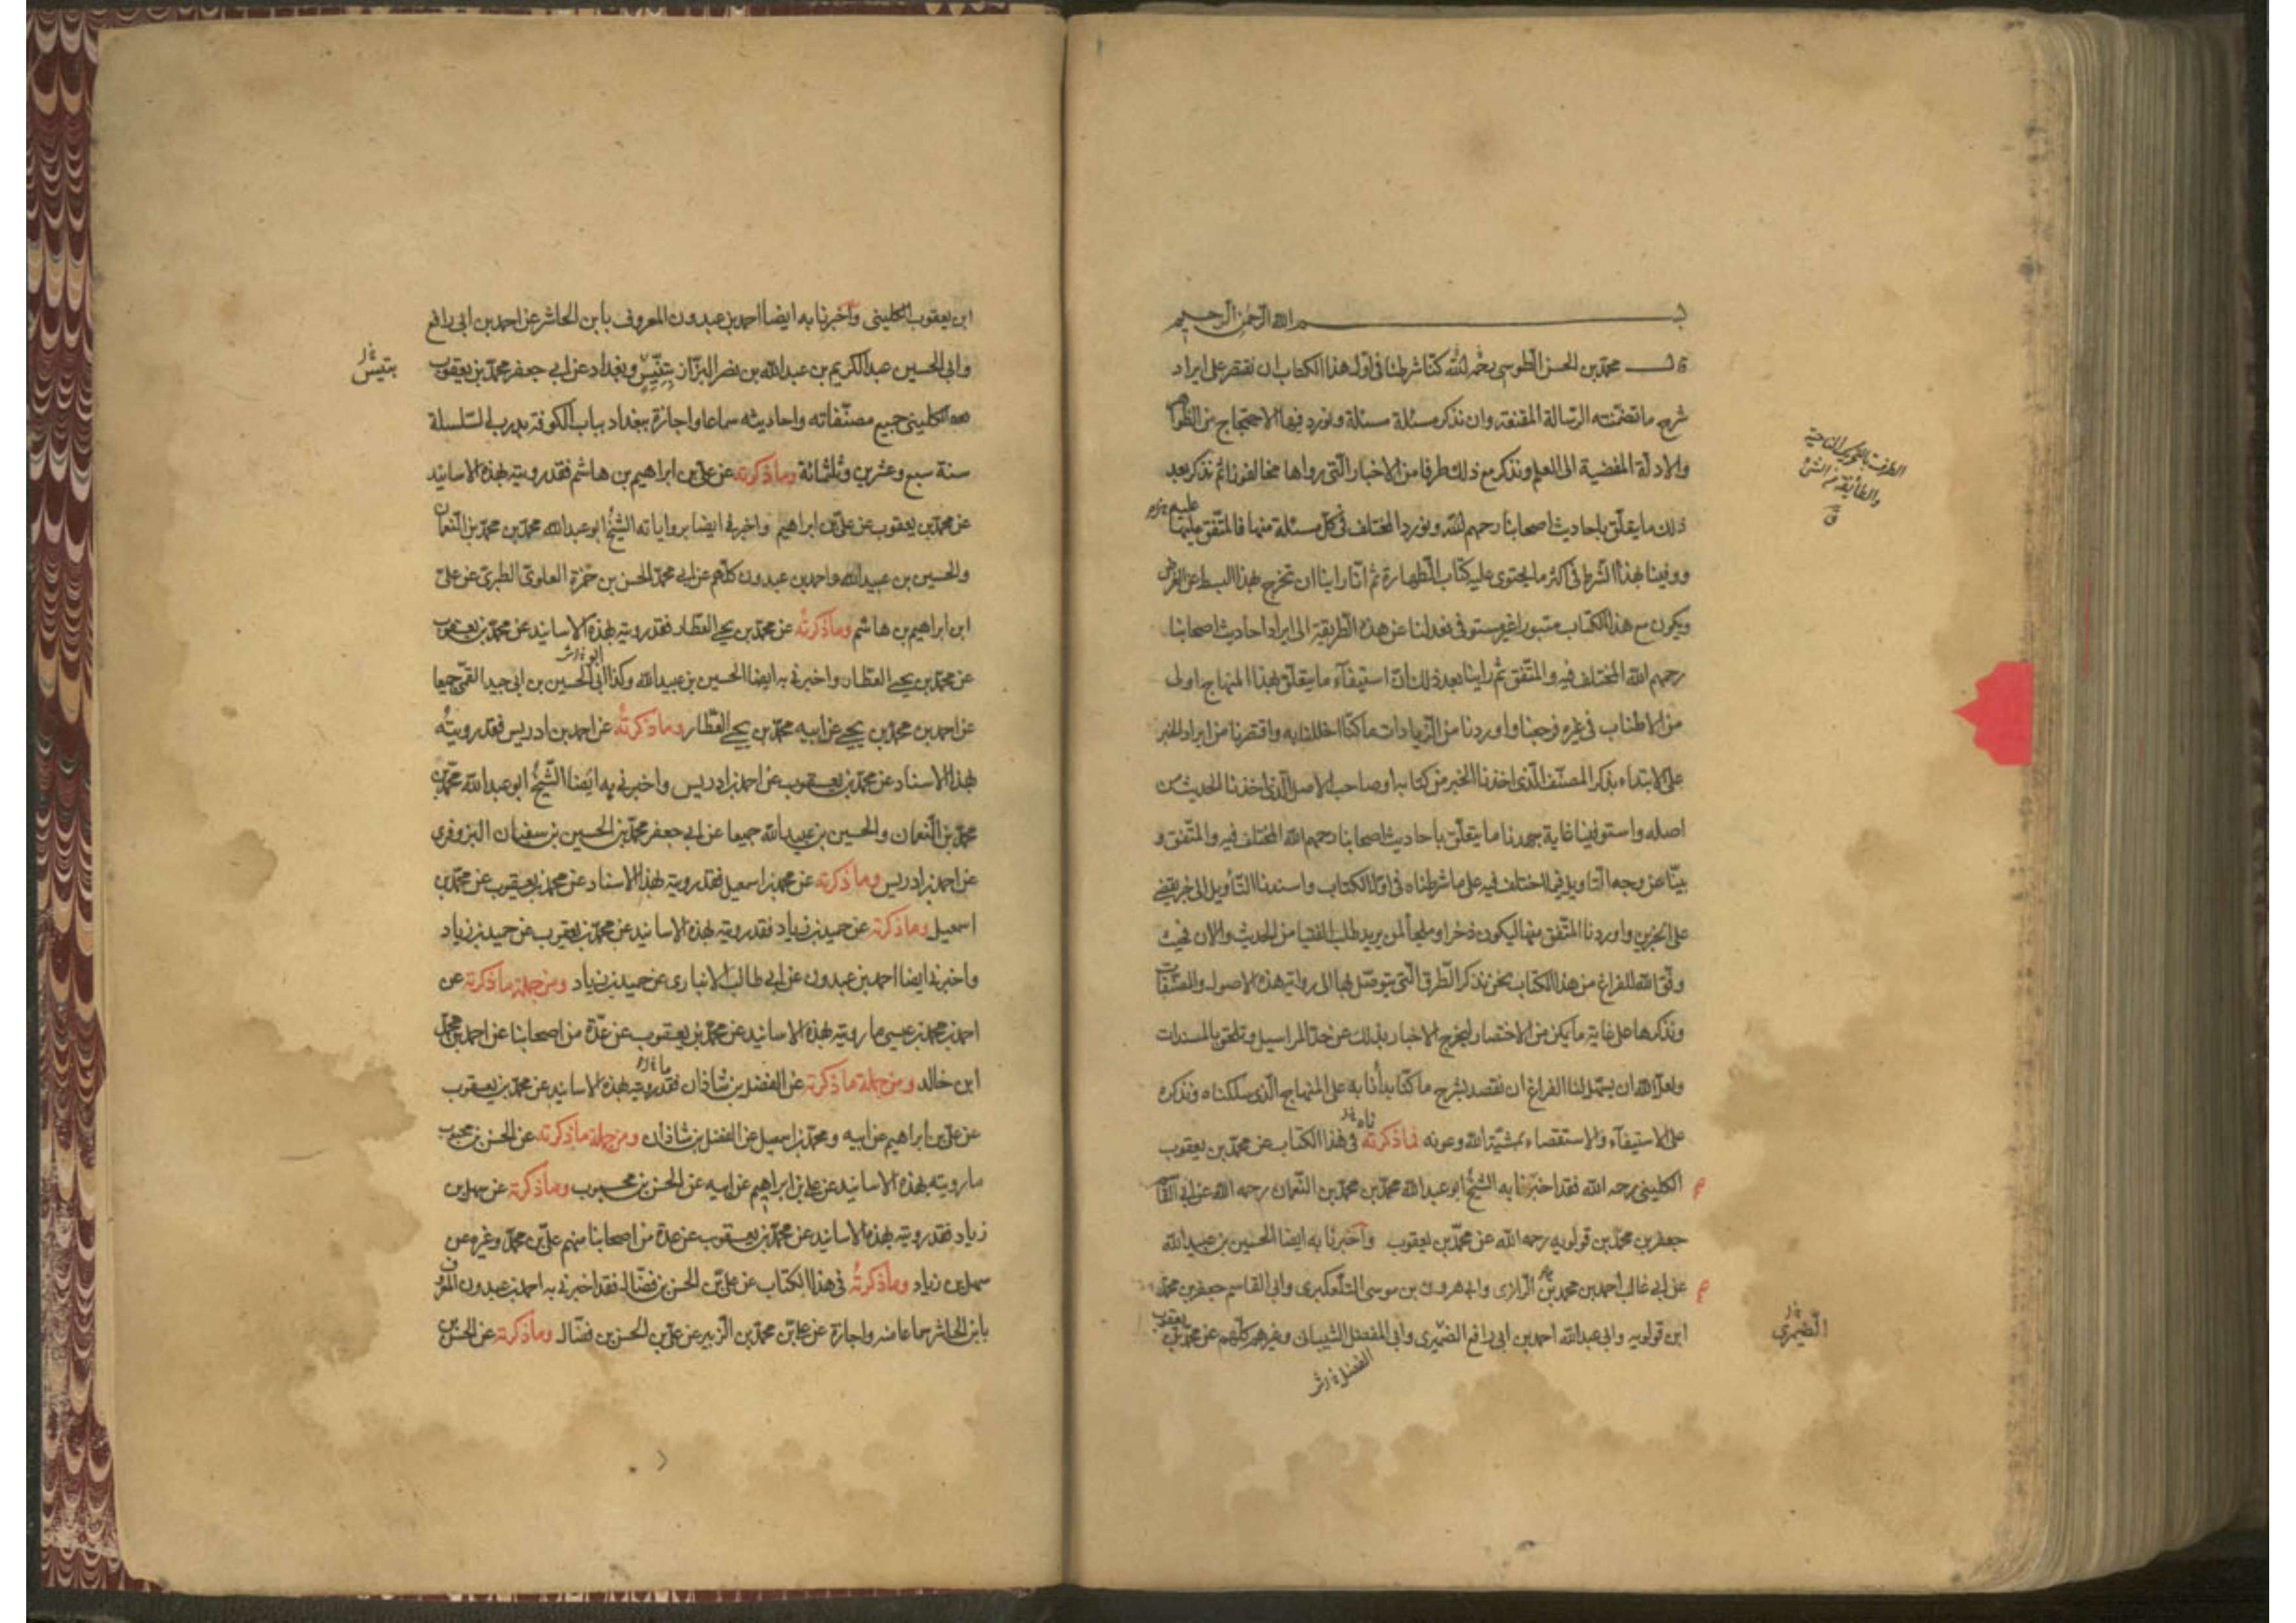 بسم الله الرحمن الرحيم
قال محمد بن الحسن الطوسي رحمه الله كنا شرطنا في اول هذا الكتاب ان نقتصر على ايراد
شرح ما تضمنته الرسالة المقنعة وان نذكر مسئلة مسئلة ونورد فيها الاحتجاج من الظواهر
والادلة المفضية الى العلم ونذكر مع ذلك طرفا من الاخبار التي رواها مخالفونا ثم نذكر بعد
ذلك ما يتعلق باحاديث اصحابنا رحمهم الله ونورد المختلف في كل مسئلة منها والمتفق عليها
ووفينا بهذا الشرط في اكثر ما يحتوى عليه كتاب الطهارة ثم انا راينا ان نخرج بهذا البسط عن الغرض
ويكون مع هذا الكتاب مبتورا غير مستوفى فعدلنا عن هذه الطريقة الى ايراد احاديث اصحابنا
رحمهم الله المختلف فيه والمتفق ثم راينا بعد ذلك ان استيفاء ما يتعلق بهذا المنهاج اولى
من الاطناب في غيره فرجعنا واوردنا من الزيادات ما كنا اخللنا به واقتصرنا من ايراد الخبر
على الابتداء بذكر المصنف الذي اخذنا الخبر من كتابه او صاحب الاصل الذي اخذنا الحديث من
اصله واستوفينا غاية جهدنا ما يتعلق باحاديث اصحابنا رحمهم الله المختلف فيه والمتفق و
بينا عن وجه التاويل فيما اختلف فيه على ما شرطناه في اول الكتاب واسندنا التأويل الى خبر يقضى
على الخبرين واوردنا المتفق منها ليكون ذخرا وملجأ لمن يريد طلب الفتيا من الحديث والان فحيث
وفق الله للفراغ من هذا الكتاب نحن نذكر الطرق التي يتوصل بها الى رواية هذه الاصول والمصنفات
ونذكرها على غاية ما يمكن من الاختصار لتخرج الاخبار بذلك عن حد المراسيل وتلحق بالمسندات
ولعل الله ان يسهل لنا الفراغ ان نقصد بشرح ما كنا بدأنا به على المنهاج الذي سلكناه ونذكره
على الاستيفاء والاستقصاء بمشية الله وعونه فما ذكرته في هذا الكتاب عن محمد بن يعقوب
الكليني رحمه الله فقد اخبرنا به الشيخ ابو عبد الله محمد بن محمد بن النعمان رحمه الله عن ابى القاسم
جعفر بن محمد بن قولويه رحمه الله عن محمد بن يعقوب واخبرنا به ايضا الحسين بن عبيد الله
عن ابى غالب احمد بن محمد الزرارى وابى هرون بن موسى التلعكبرى وابى القاسم جعفر بن محمد
ابن قولويه وابى عبد الله احمد بن ابى رافع الضيمرى وابى المفضل الشيبانى وغيرهم كلهم عن محمد بن يعقوب
الضيمرى
ابن يعقوب الكليني واخبرنا به ايضا احمد بن عبدون المعروف بابن الحاشر عن احمد بن ابى رافع
وابى الحسين عبد الكريم بن عبد الله بن نصر البزاز بتنيس وبغداد عن ابى جعفر محمد بن يعقوب
الكليني جميع مصنفاته واحاديثه سماعا واجازة ببغداد بباب الكوفة بدرب السلسلة
سنة سبع وعشرين وثلثمائة وما ذكرته عن على بن ابراهيم بن هاشم فقد رويته بهذه الاسانيد
عن محمد بن يعقوب عن على بن ابراهيم واخبرنى ايضا برواياته الشيخ ابو عبد الله محمد بن محمد بن النعمان
والحسين بن عبيد الله واحمد بن عبدون كلهم عن ابى محمد الحسن بن حمزة العلوى الطبرى عن على
ابن ابراهيم بن هاشم وما ذكرته عن محمد بن يحيى العطار فقد رويته بهذه الاسانيد عن محمد بن يعقوب
عن محمد بن يحيى العطار واخبرنى به ايضا الحسين بن عبيد الله وكذا ابى الحسين بن ابى جيد القمى جميعا
عن احمد بن محمد بن يحيى عن ابيه محمد بن يحيى العطار وما ذكرته عن احمد بن ادريس فقد رويته
بهذا الاسناد عن محمد بن يعقوب عن احمد بن ادريس واخبرنى به ايضا الشيخ ابو عبد الله محمد بن
محمد بن النعمان والحسين بن عبيد الله جميعا عن ابى جعفر محمد بن الحسين بن سفيان البزوفرى
عن احمد بن ادريس وما ذكرته عن محمد بن اسمعيل فقد رويته بهذا الاسناد عن محمد بن يعقوب عن محمد بن
اسمعيل وما ذكرته عن حميد بن زياد فقد رويته بهذه الاسانيد عن محمد بن يعقوب عن حميد بن زياد
واخبرنى ايضا احمد بن عبدون عن ابى طالب الانبارى عن حميد بن زياد ومن جملة ما ذكرته عن
احمد بن محمد بن عيسى ما رويته بهذه الاسانيد عن محمد بن يعقوب عن عدة من اصحابنا عن احمد بن محمد
ابن خالد ومن جملة ما ذكرته عن الفضل بن شاذان فقد رويته بهذه الاسانيد عن محمد بن يعقوب
عن على بن ابراهيم عن ابيه ومحمد بن اسمعيل عن الفضل بن شاذان ومن جملة ما ذكرته عن الحسن بن محبوب
ما رويته بهذه الاسانيد عن على بن ابراهيم عن ابيه عن الحسن بن محبوب وما ذكرته عن سهل بن
زياد فقد رويته بهذه الاسانيد عن محمد بن يعقوب عن عدة من اصحابنا منهم على بن محمد وغيره عن
سهل بن زياد وما ذكرته في هذا الكتاب عن على بن الحسن بن فضال فقد اخبرنى به احمد بن عبدون المعروف
بابن الحاشر سماعا منه واجازة عن على بن محمد بن الزبير عن على بن الحسن بن فضال وما ذكرته عن الحسن بن